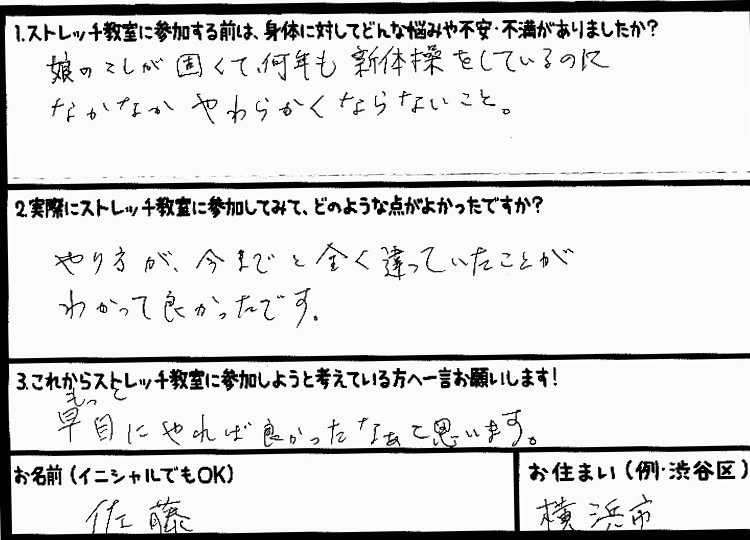 1.ストレッチ教室に参加する前は、身体に対してどんな悩みや不安・不満がありましたか？
娘のこしが固くて、何年も新体操をしているのに
なかなかやわらかくならないこと。
2.実際にストレッチ教室に参加してみて、どのような点がよかったですか？
やり方が、今までと全く違っていたことが
わかって良かったです。
3.これからストレッチ教室に参加しようと考えている方へ一言お願いします！
もっと
早目にやれば良かったなぁと思います。
お名前（イニシャルでもOK）
佐藤
お住まい（例・渋谷区）
横浜市